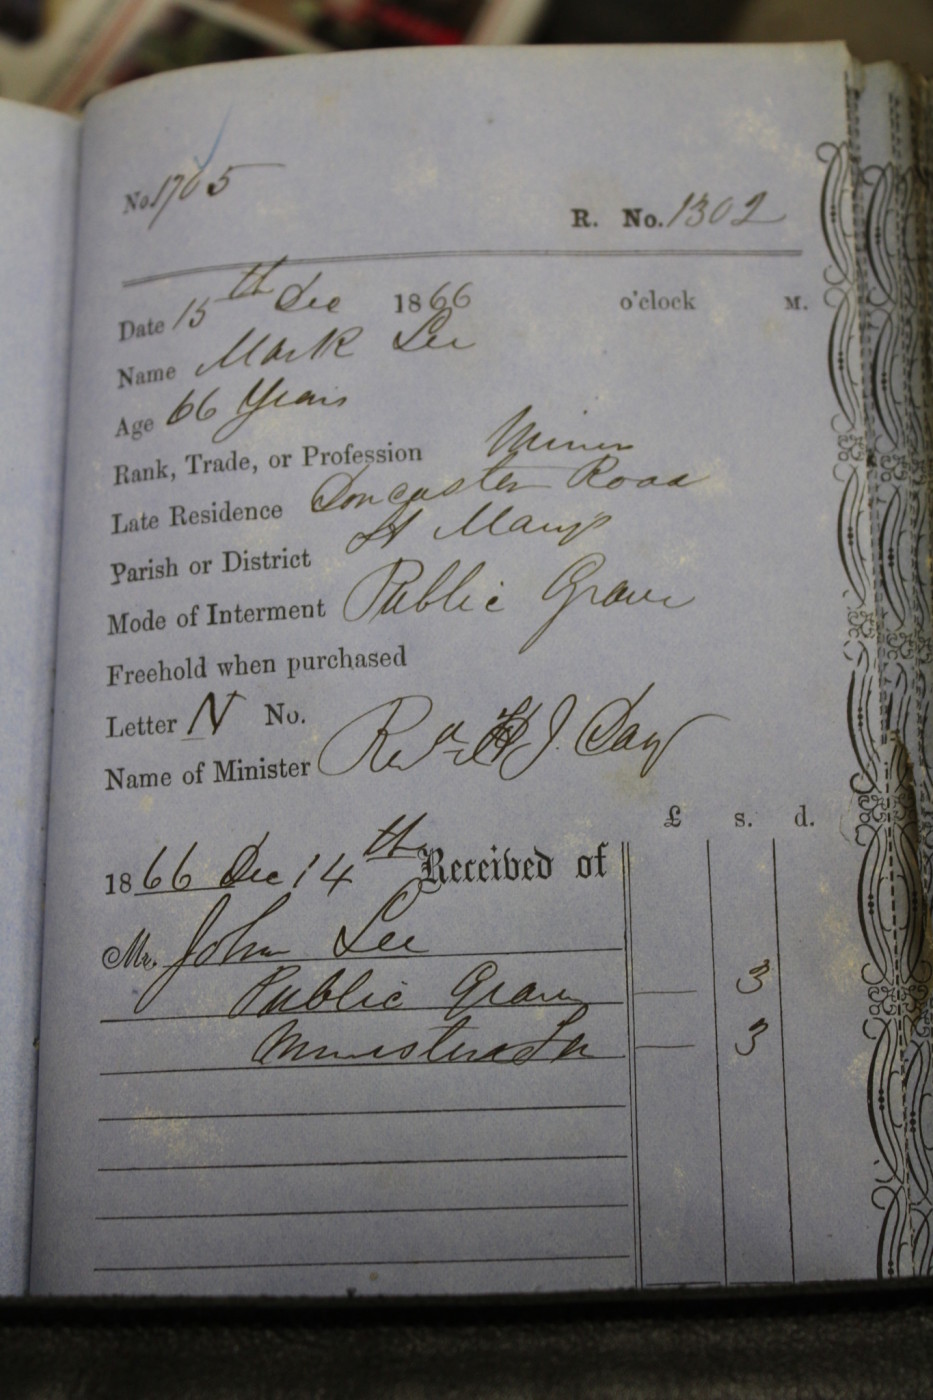 No. 1705
R. No. 1302
Date 15th Dec 1866 o'clock M.
Name Mark Lee
Age 66 Years
Rank, Trade, or Profession Miner
Late Residence Doncaster Road
Parish or District St Marys
Mode of Interment Public Grave
Freehold when purchased
Letter N No.
Name of Minister Revd H J. Day
£ s. d.
1866 Dec 14th Received of
Mr. John Lee
Public Grave — 3
Ministers Fee — 3